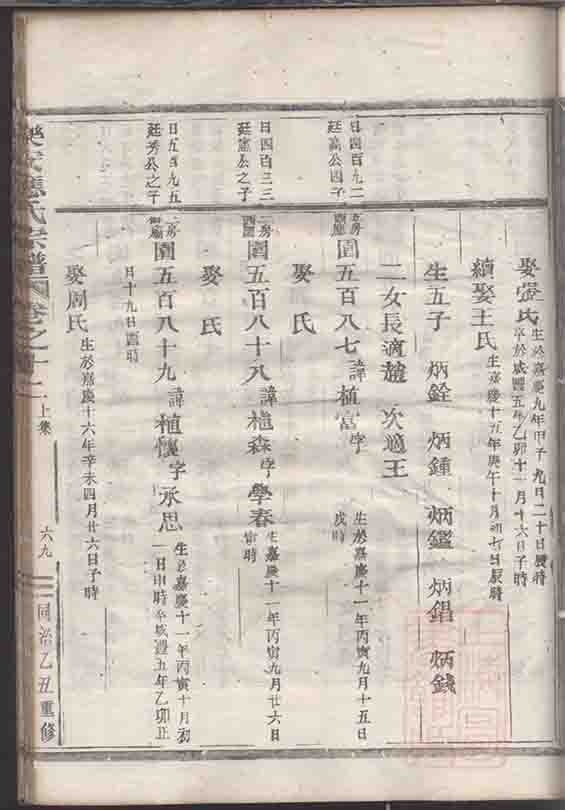 娶張氏 生於嘉慶九年甲子九日二十日辰時
卒於咸豐五年乙卯十一月十六日子時
續娶王氏 生嘉慶十五年庚午十月初七日辰時
生五子 炳銓 炳鍾 炳鑑 炳錩 炳錢
二女長適趙 次適王
日四百九二
廷高公四子
園五百八七諱植富字 生於嘉慶十一年丙寅九月十五日
戌時
娶 氏
日四百三三
廷憲公之子
二房
園五百八十八諱植森字學春 生嘉慶十一年丙寅九月廿六日
寅時
娶 氏
日五百九五
廷秀公之子
二房
園五百八十九諱植懷字承思 生於嘉慶十一年丙寅十月初
一日申時卒咸豐五年乙卯正
月十九日酉時
娶周氏 生於嘉慶十六年辛未四月廿六日子時
氏宗譜 卷之十二 上集 六九 同治乙丑重修